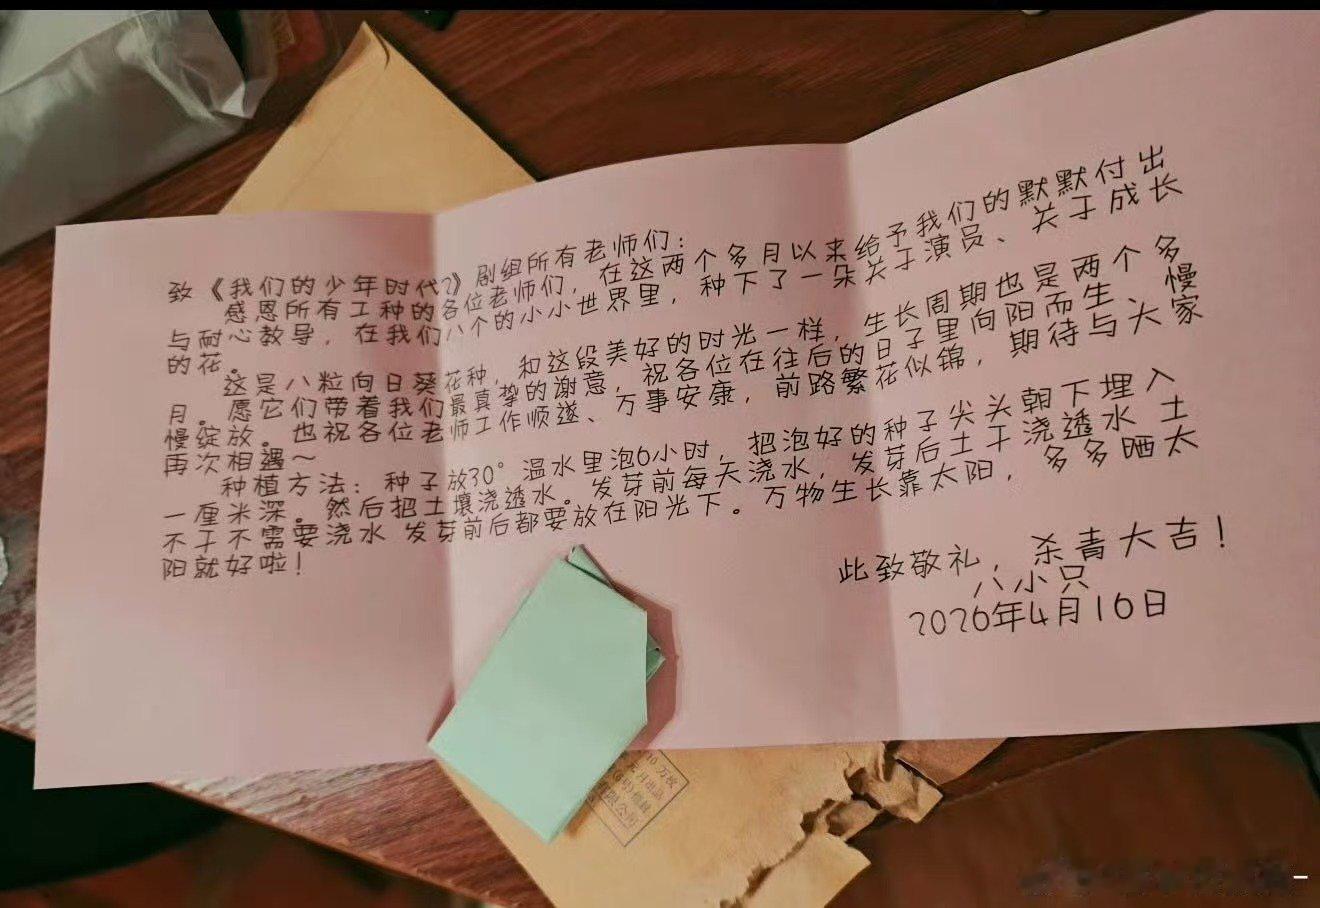 致《我们的少年时代2》剧组所有老师们：
感恩所有工种的各位老师们，在这两个多月以来给予我们的默默付出
与耐心教导，在我们八个的小小世界里，种下了一朵关于演员、关于成长
的花。
这是八粒向日葵花种，和这段美好的时光一样，生长周期也是两个多
月。愿它们带着我们最真挚的谢意，祝各位在往后的日子里向阳而生、慢
慢绽放。也祝各位老师工作顺遂、万事安康，前路繁花似锦，期待与大家
再次相遇～
种植方法：种子放30°温水里泡6小时，把泡好的种子尖头朝下埋入
一厘米深。然后把土壤浇透水。发芽前每天浇水，发芽后土干浇透水 土
不干不需要浇水 发芽前后都要放在阳光下。万物生长靠太阳，多多晒太
阳就好啦！
此致敬礼，杀青大吉！
八小只
2026年4月16日